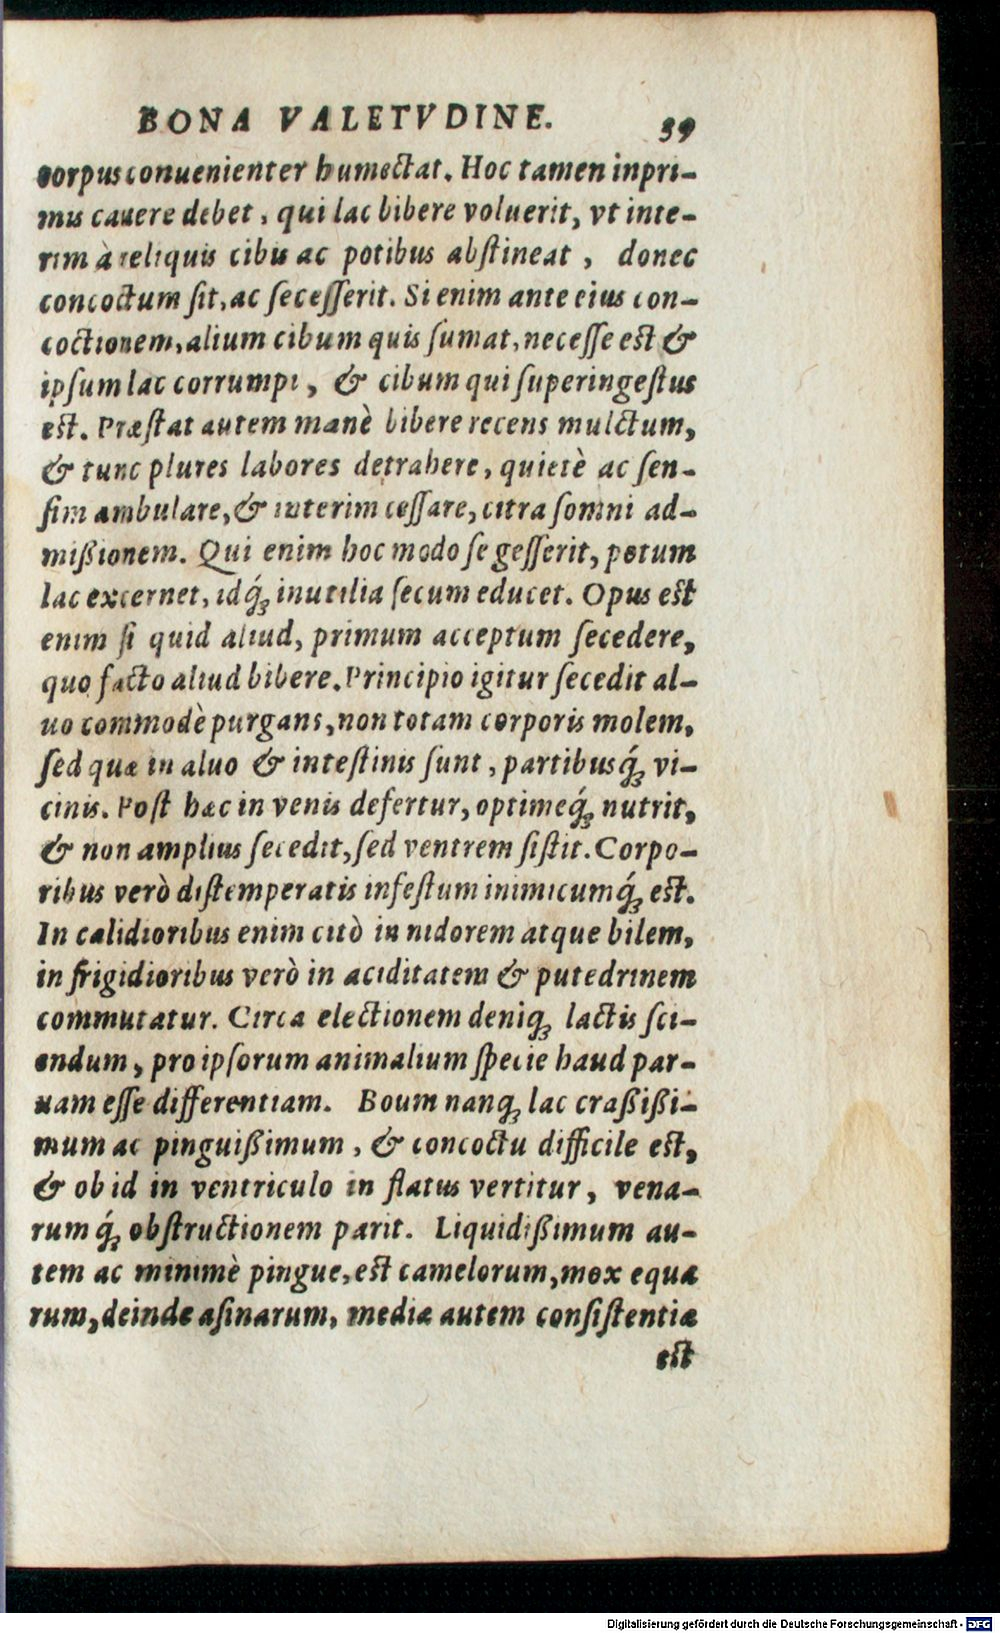 BONA VALETVDINE. 59
corpus conuenienter humectat. Hoc tamen inpri-
mis cauere debet, qui lac bibere voluerit, vt inte-
rim à reliquis cibis ac potibus abſtineat, donec
concoctum ſit, ac ſeceſſerit. Si enim ante eius con-
coctionem, alium cibum quis ſumat, neceſſe est &
ipſum lac corrumpi, & cibum qui ſuperingeſtus
est. Præſtat autem manè bibere recens mulctum,
& tunc plures labores detrahere, quietè ac ſen-
ſim ambulare, & interim ceſſare, citra ſomni ad-
mißionem. Qui enim hoc modo ſe geſſerit, potum
lac excernet, idq́ꝫ inutilia ſecum educet. Opus est
enim ſi quid aliud, primum acceptum ſecedere,
quo facto aliud bibere. Principio igitur ſecedit al-
uo commodè purgans, non totam corporis molem,
ſed quæ in aluo & inteſtinis ſunt, partibusq́ꝫ vi-
cinis. Poſt hæc in venis defertur, optimeq́ꝫ nutrit,
& non amplius ſecedit, ſed ventrem ſiſtit. Corpo-
ribus verò diſtemperatis infeſtum inimicumq́ꝫ est.
In calidioribus enim citò in nidorem atque bilem,
in frigidioribus verò in aciditatem & putedrinem
commutatur. Circa electionem deniqꝫ lactis ſci-
endum, pro ipſorum animalium ſpecie haud par-
uam eſſe differentiam. Boum nanqꝫ lac craßißi-
mum ac pinguißimum, & concoctu difficile est,
& ob id in ventriculo in flatus vertitur, vena-
rum q́ꝫ obſtructionem parit. Liquidißimum au-
tem ac minimè pingue, est camelorum, mox equa
rum, deinde aſinarum, mediæ autem conſiſtentiæ
est
Digitalisierung gefördert durch die Deutsche Forschungsgemeinschaft - DFG